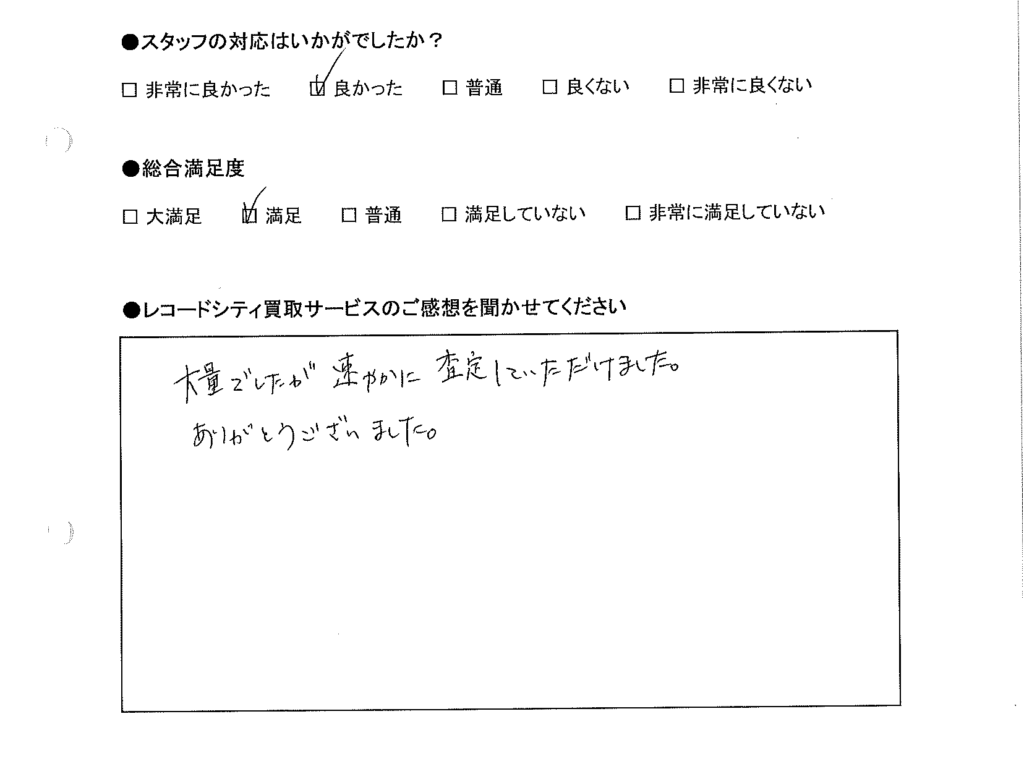 ●スタッフの対応はいかがでしたか？
□ 非常に良かった ☑ 良かった □ 普通 □ 良くない □ 非常に良くない
●総合満足度
□ 大満足 ☑ 満足 □ 普通 □ 満足していない □ 非常に満足していない
●レコードシティ買取サービスのご感想を聞かせてください
大量でしたが速やかに査定していただけました。
ありがとうございました。